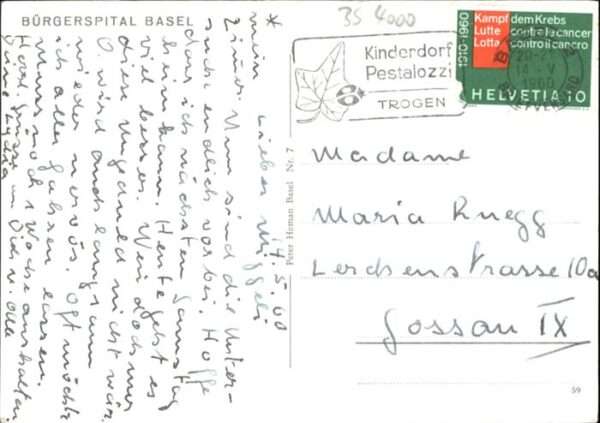 BÜRGERSPITAL BASEL
35 4000
Kinderdorf
Pestalozzi
TROGEN
1910-1960
Kampf dem Krebs
Lutte contre le cancer
Lotta contro il cancro
HELVETIA 10
14.5.60
* mein lieber Miggeli
Zimmer. Nun sind die Unter-
suche endlich vorbei. Hoffe
dass ich nächsten Samstag
heim kann. Heute geht es
viel besser. Wenn doch nur
diese Ungeduld nicht wär.
O wird auch langsam
wieder nervös. Oft möchte
ich alles fahren lassen.
Muss noch 1 Woche aushalten.
Herzl. Grüsse an Dich u. alle
Deine Lydia
Peter Heman Basel Nr. 7
Madame
Maria Ruegg
Lerchenstrasse 10a
Gossau IX
59